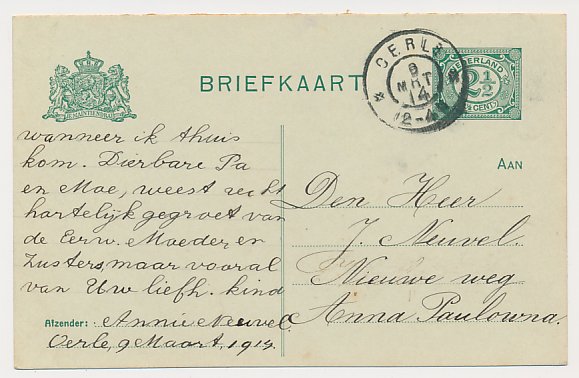 BRIEFKAART
JE MAINTIENDRAI
OERLE
9
MRT
14
12-4
NEDERLAND
2½
CENT
wanneer ik thuis
kom. Dierbare Pa
en Moe, weest recht
hartelijk gegroet van
de Eerw. Moeder en
Zusters, maar vooral
van Uw liefh. kind
Afzender: Annie Neuvel.
Oerle, 9 Maart, 1914.
AAN
Den Heer
J. Neuvel.
Nieuwe weg
Anna Paulowna.